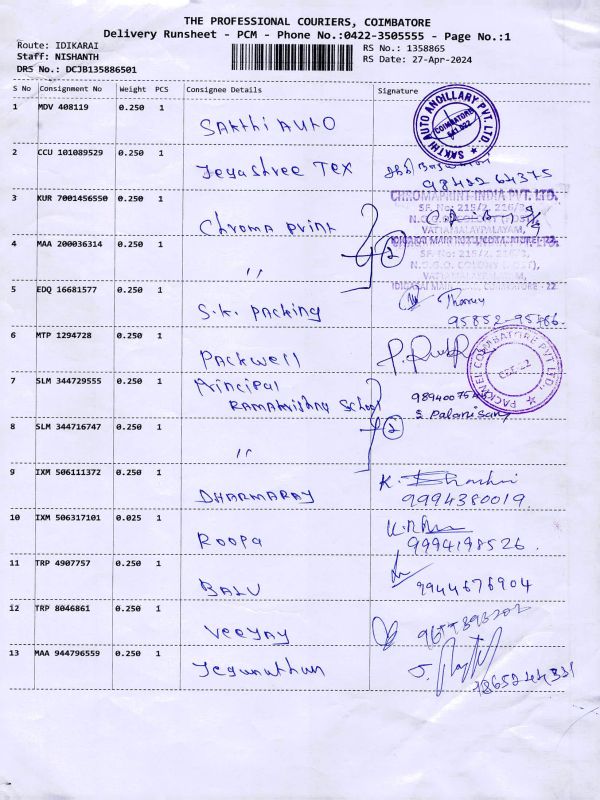 THE PROFESSIONAL COURIERS, COIMBATORE
Delivery Runsheet - PCM - Phone No.:0422-3505555 - Page No.:1
Route: IDIKARAI RS No.: 1358865
Staff: NISHANTH RS Date: 27-Apr-2024
DRS No.: DCJB135886501
S No Consignment No Weight PCS Consignee Details Signature
1 MDV 408119 0.250 1 SAKthi AUTO SAKTHI AUTO ANCILLARY PVT. LTD. COIMBATORE
2 CCU 101089529 0.250 1 Jeyashree Tex 98422 64375
3 KUR 7001456550 0.250 1 Chroma print CHROMAPRINT INDIA PVT. LTD.
SF. No: 215/2, 216/3,
VATTAMALAIPALAYAM,
4 MAA 200036314 0.250 1 " 2
5 EDQ 16681577 0.250 1 S.K. Packing
95852-95866.
6 MTP 1294728 0.250 1 Packwell COIMBATORE PVT LTD.
7 SLM 344729555 0.250 1 Principal
Ramakrishna School S Palanisamy
8 SLM 344716747 0.250 1 " 2
9 IXM 506111372 0.250 1 DHARMARAJ K.
9994380019.
10 IXM 506317101 0.025 1 Roopa
9994198526.
11 TRP 4907757 0.250 1 BALU 9944676904
12 TRP 8046861 0.250 1 Veejay
13 MAA 944796559 0.250 1 Jegunathan J.